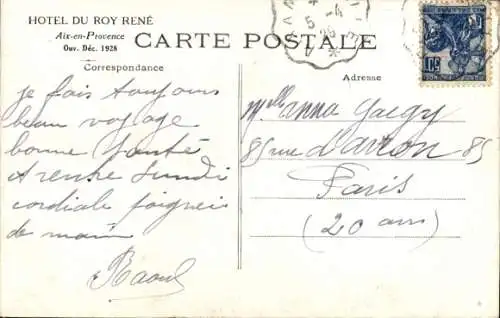 HOTEL DU ROY RENÉ
Aix-en-Provence
Ouv. Déc. 1928
CARTE POSTALE
Correspondance
Adresse
je fais toujours
beau voyage
bonne santé
A lundi
cordiale poignée
de main
Raoul
Mlle Anna Gaegy
85 rue d'avron 85
Paris
(20 am)